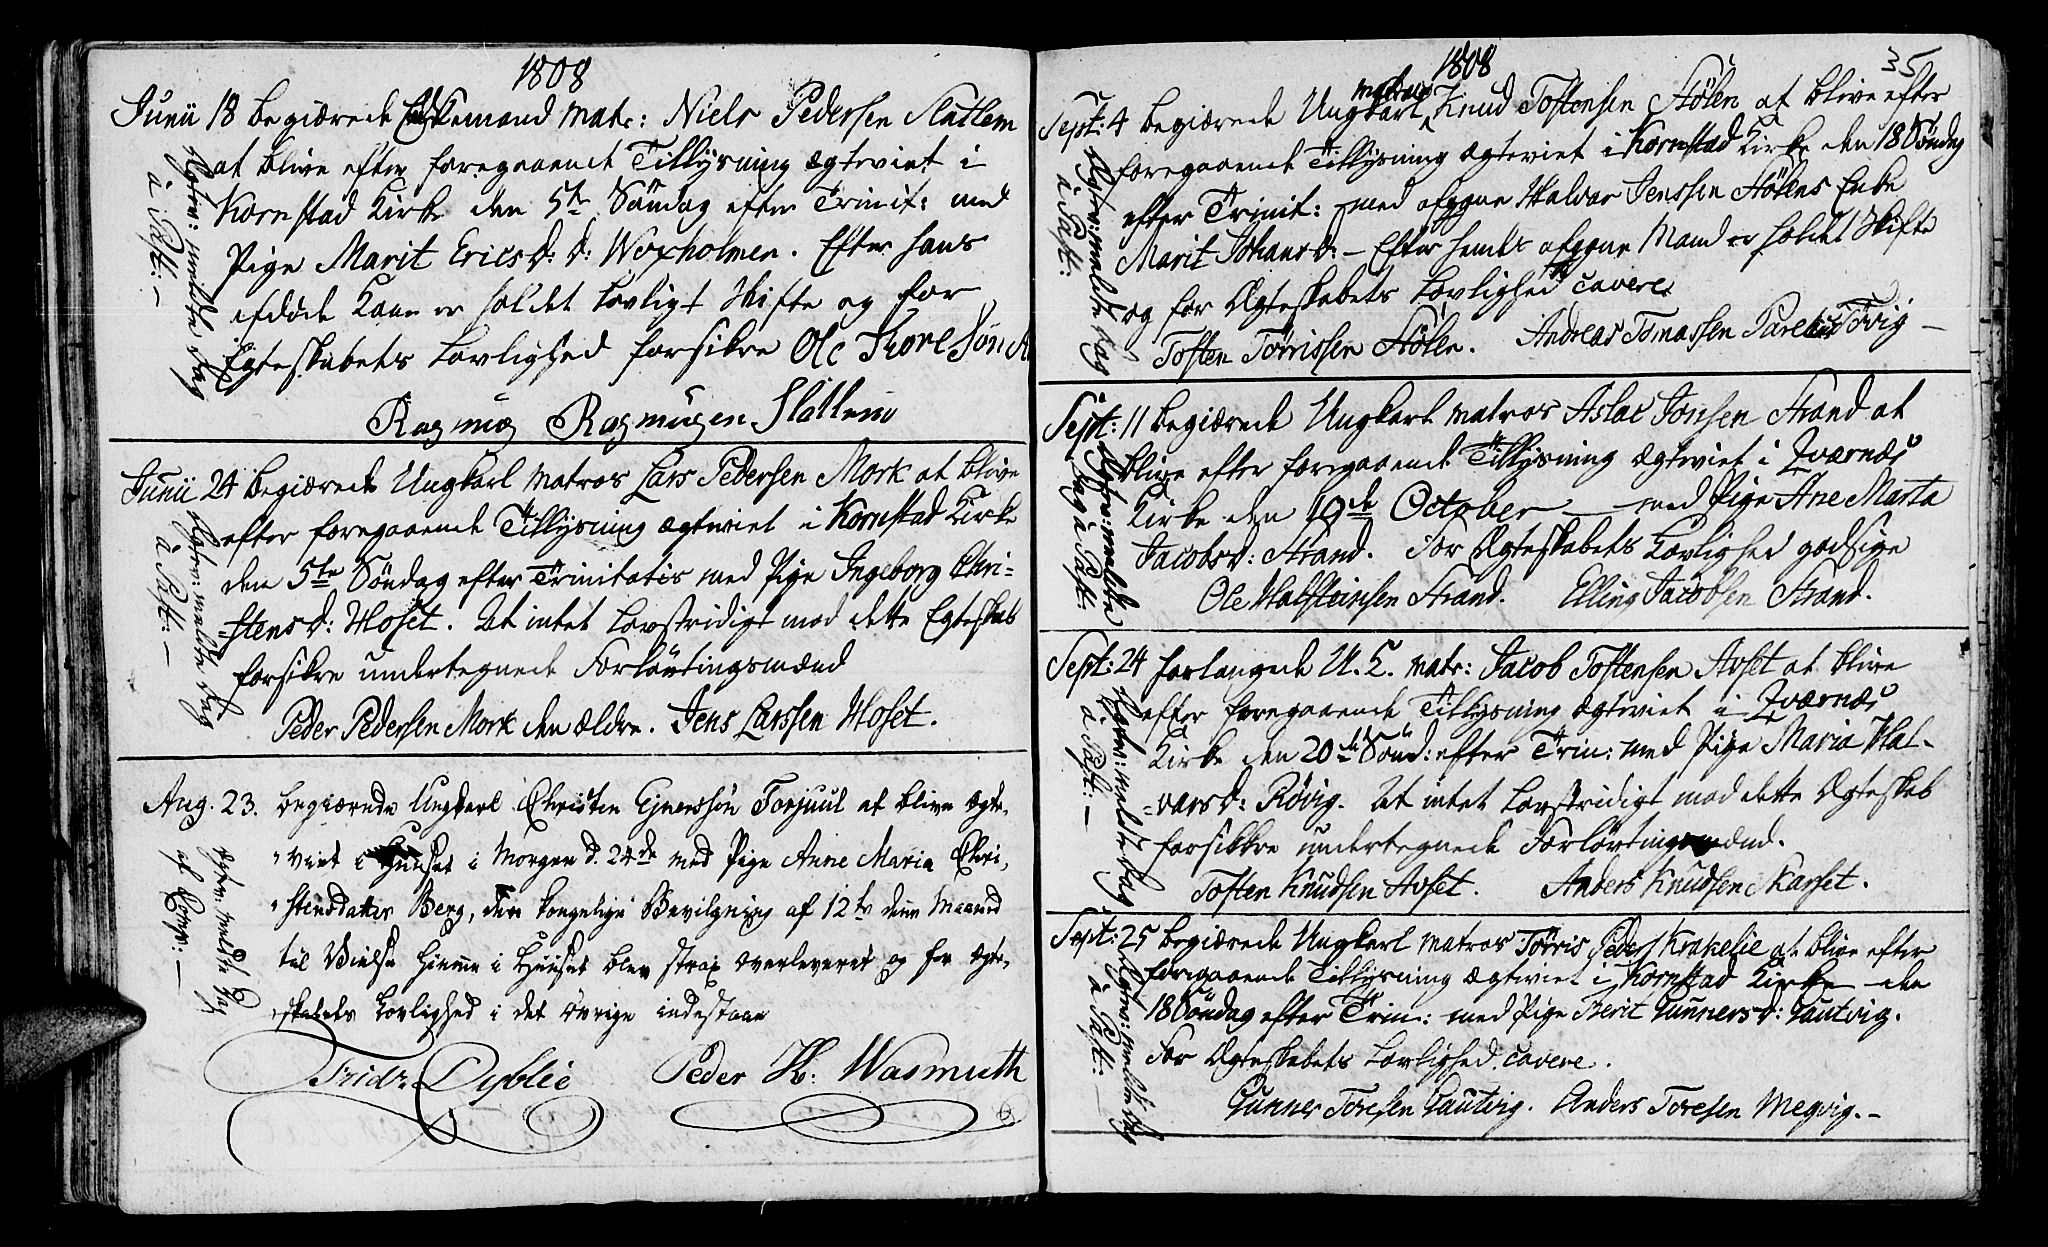 1808
Junii 18 begiærede Enkemand matr: Niels Pedersen Slatlem
at blive efter foregaaende Tillysning ægteviet i
Kornstad Kirke den 5te Söndag efter Trinit: med
Pige Marit Ericsd: d: Woxholmen. Efter hans
afdöde Kone er holdet Lovligt Skifte og for
Egteskabets Lovlighed forsikre Ole Thore Sön
Rasmus Rasmusen Slatlem
à Satt: —
Junii 24 begiærede Ungkarl matros Lars Pedersen Mork at blive
efter foregaaende Tillysning ægteviet i Kornstad Kirke
den 5te Söndag efter Trinitatis med Pige Ingeborg Chri-
stensd: Hoset. At intet Lovstridigt mod dette Egteskab
forsikre undertegnede Forlovtingsmænd
Peder Pedersen Mork den ældre. Jens Larssen Hoset.
à Satt: —
Aug. 23. begiærede Ungkarl Christen Ejnerssön Torjuul at blive ægte-
viet i Huuset i Morgen d. 24de med Pige Anne Maria Chri-
stensdatter Berg, den kongelige Bevilgning af 12te denne Maaned
til Vielse hiemme i Huuset blev strax overleveret og for Ægte-
skabets Lovlighed i det övrige indestaae
Fridr. Dyblie Peder H: Wasmuth
1808
35
Sept: 4 begiærede Ungkarl matros Knud Tostensen Stölen at blive efter
foregaaende Tillysning ægteviet i Kornstad Kirke den 18 Söndag
efter Trinit: med afggne Halvar Jenssen Stölens Enke
Marit Johansd: — Efter hendes afgagne Mand er holdet Skifte
og for Ægteskabets Lovlighed cavere
Tosten Törrissen Stölen. Andreas Tomassen Parelius Tövig —
à Satt:
Sept: 11 begiærede Ungkarl matros Aslac Jonsen Strand at
blive efter foregaaende Tillysning ægteviet i Qværnæs
Kirke den 19de October — med Pige Ane Marta
Jacobsd: Strand. For Ægteskabets Lovlighed godsige
Ole Halsteinsen Strand. Elling Jacobsen Strand.
Sept: 24 forlangede U. C. matr: Jacob Tostensen Avset at blive
efter foregaaende Tillysning ægteviet i Qværnæs
Kirke den 20de Sönd: efter Trin: med Pige Maria Hal-
varsd: Rövig. At intet Lovstridigt mod dette Ægteskab
forsikkre undertegnede Forlovtingsmænd.
Tosten Knudsen Avset. Anders Knudsen Skarset.
à Satt: —
Sept: 25 begiærede Ungkarl matros Törris Peders: Krakelie at blive efter
foregaaende Tillysning ægteviet i Kornstad Kirke den
18 Söndag efter Trin: med Pige Berit Gunnersd: Gautvig.
For Ægteskabets Lovlighed cavere.
Gunner Toresen Gautvig. Anders Toresen Megvig. —
à Satt: —